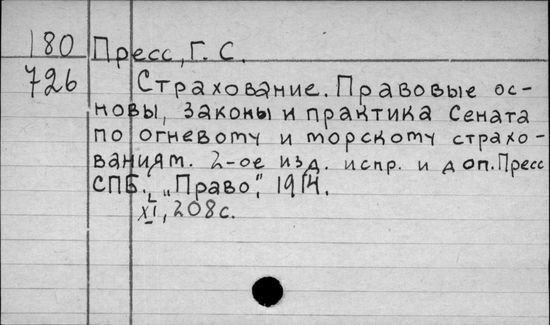 180 Пресс, Г. С.
726 Страхование. Правовые ос-
новы, законы и практика Сената
по огневому и морскому страхо-
ваниям. 2-ое изд. испр. и доп. Пресс
СПБ., „Право", 1914.
XI, 208 с.